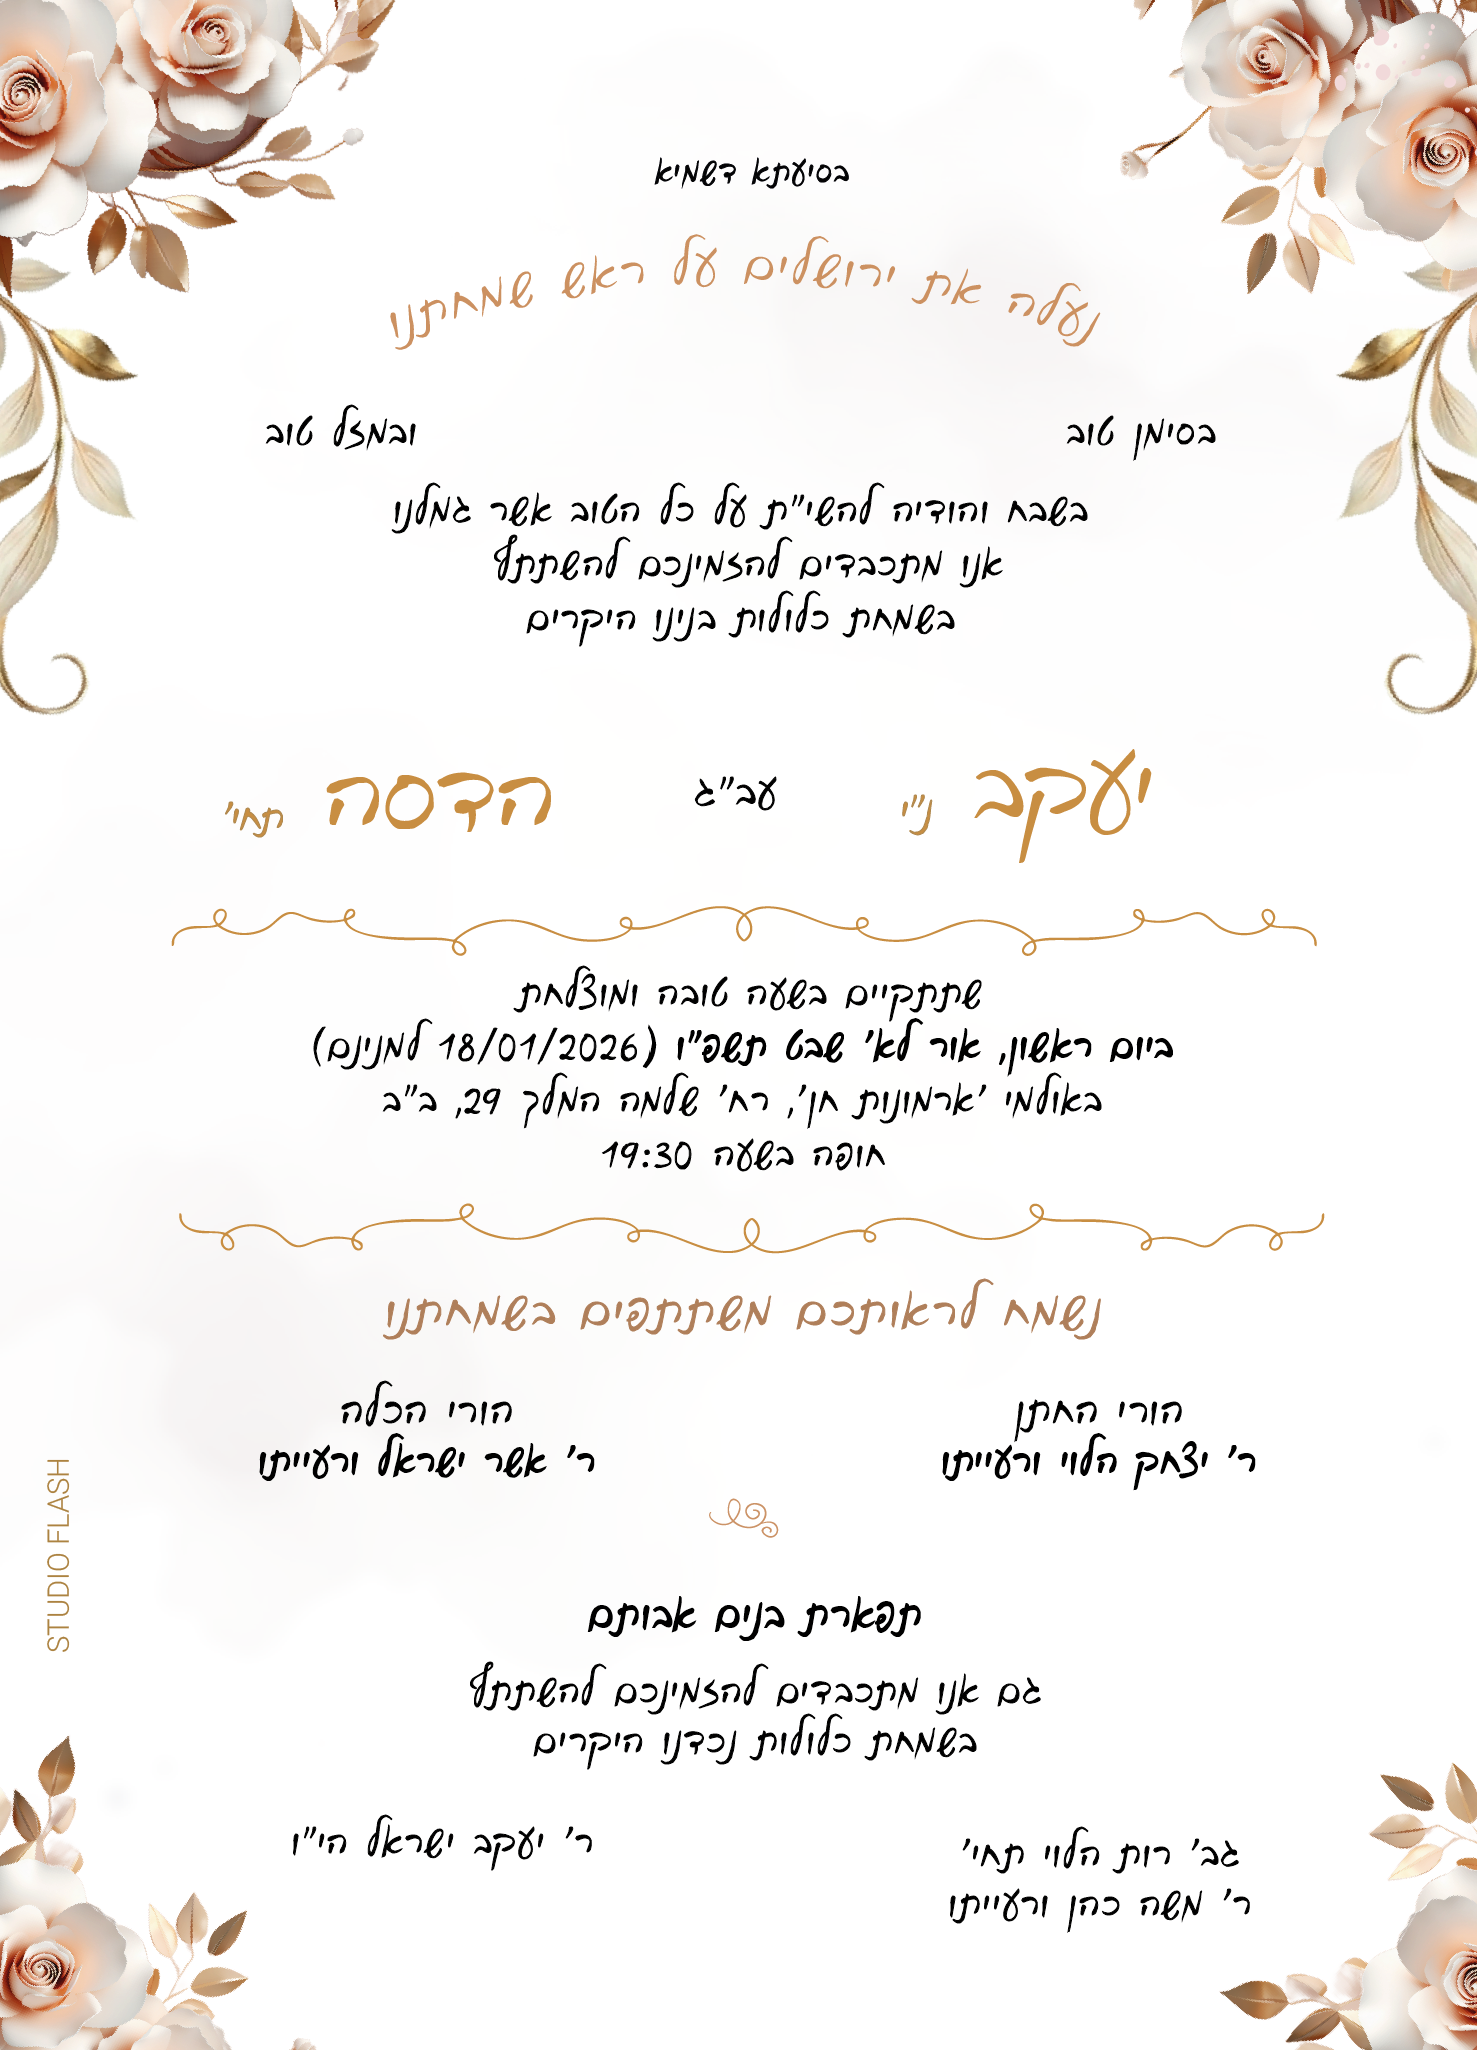 בסיעתא דשמיא
נעלה את ירושלים על ראש שמחתנו
בסימן טוב
ובמזל טוב
בשבח והודיה להשי"ת על כל הטוב אשר גמלנו
אנו מתכבדים להזמינכם להשתתף
בשמחת כלולות בנינו היקרים
יעקב ני"ו
עב"ג
הדסה תחי'
שתתקיים בשעה טובה ומוצלחת
ביום ראשון, אור לא' שבט תשפ"ו (18/01/2026 למנינם)
באולמי 'ארמונות חן', רח' שלמה המלך 29, ב"ב
חופה בשעה 19:30
נשמח לראותכם משתתפים בשמחתנו
הורי החתן
ר' יצחק הלוי ורעייתו
הורי הכלה
ר' אשר ישראל ורעייתו
תפארת בנים אבותם
גם אנו מתכבדים להזמינכם להשתתף
בשמחת כלולות נכדנו היקרים
גב' רות הלוי תחי'
ר' משה כהן ורעייתו
ר' יעקב ישראל הי"ו
STUDIO FLASH